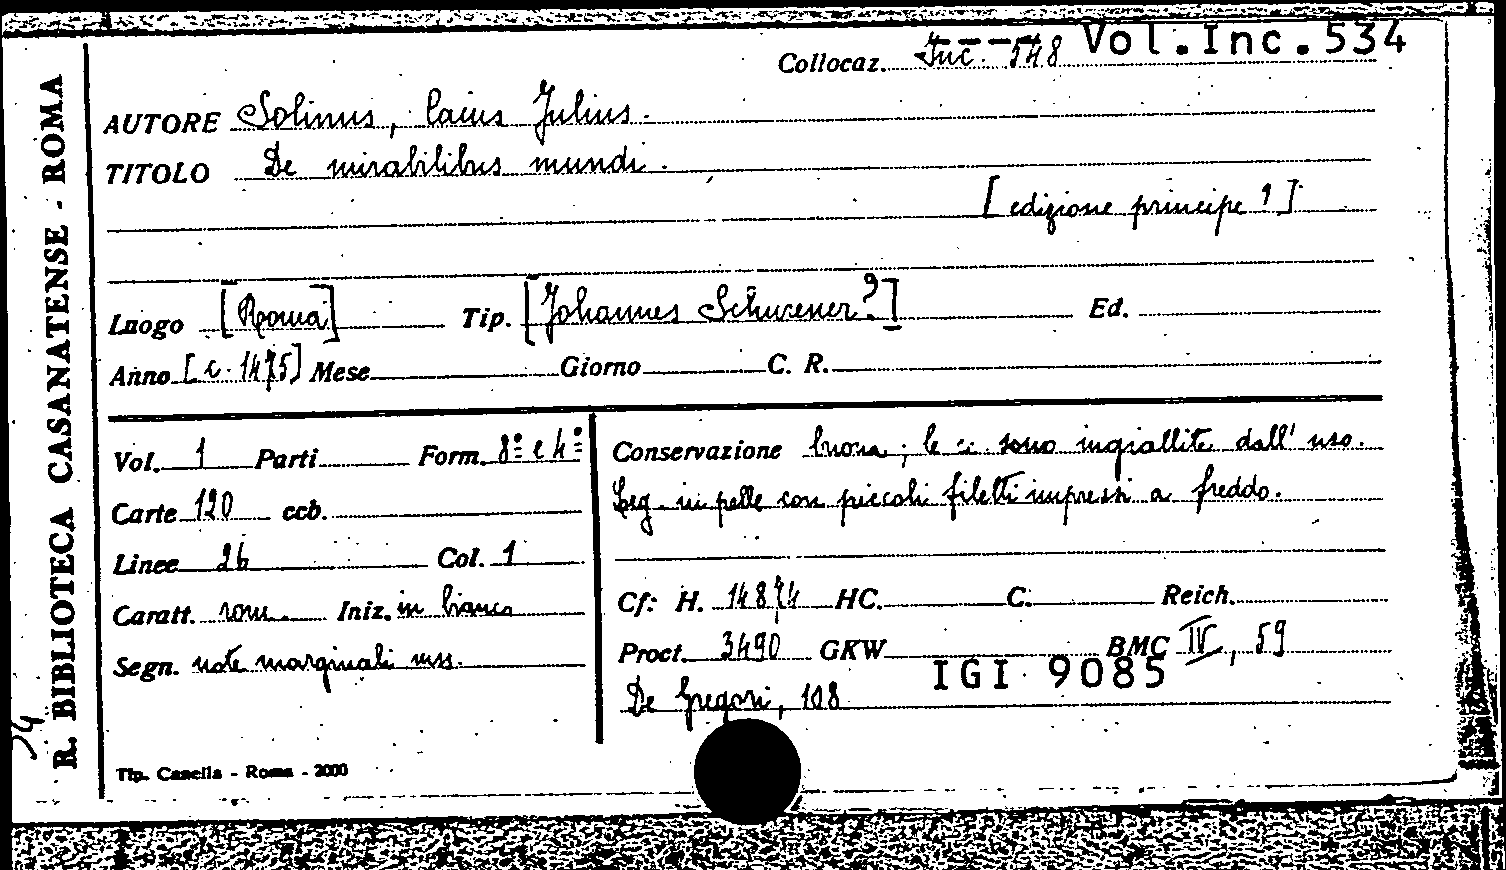 R. BIBLIOTECA CASANATENSE - ROMA
Collocaz. Inc. 548 Vol.Inc.534
AUTORE Solinus, Caius Julius.
TITOLO De mirabilibus mundi.
[edizione principe ?]
Luogo [Roma] Tip. [Johannes Schurener?] Ed.
Anno [c. 1475] Mese Giorno C. R.
Vol. 1 Parti Form. 8º e 4º
Carte 120 ccb.
Linee 26 Col. 1
Caratt. rom. Iniz. in bianco
Segn. note marginali mss.
Conservazione buona; le cc. sono ingiallite dall' uso.
Leg. in pelle con piccoli filetti impressi a freddo.
Cf: H. 14874 HC. C. Reich.
Proct. 3490 GKW BMC IV, 59
IGI 9085
De Gregori, 108
34
Tip. Canella - Roma - 2000